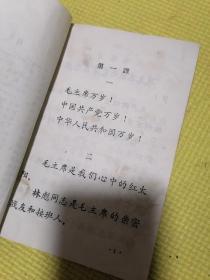 第一课
一
毛主席万岁！
中国共产党万岁！
中华人民共和国万岁！
二
毛主席是我们心中的红太
阳。
林彪同志是毛主席的亲密
战友和接班人。
·1·